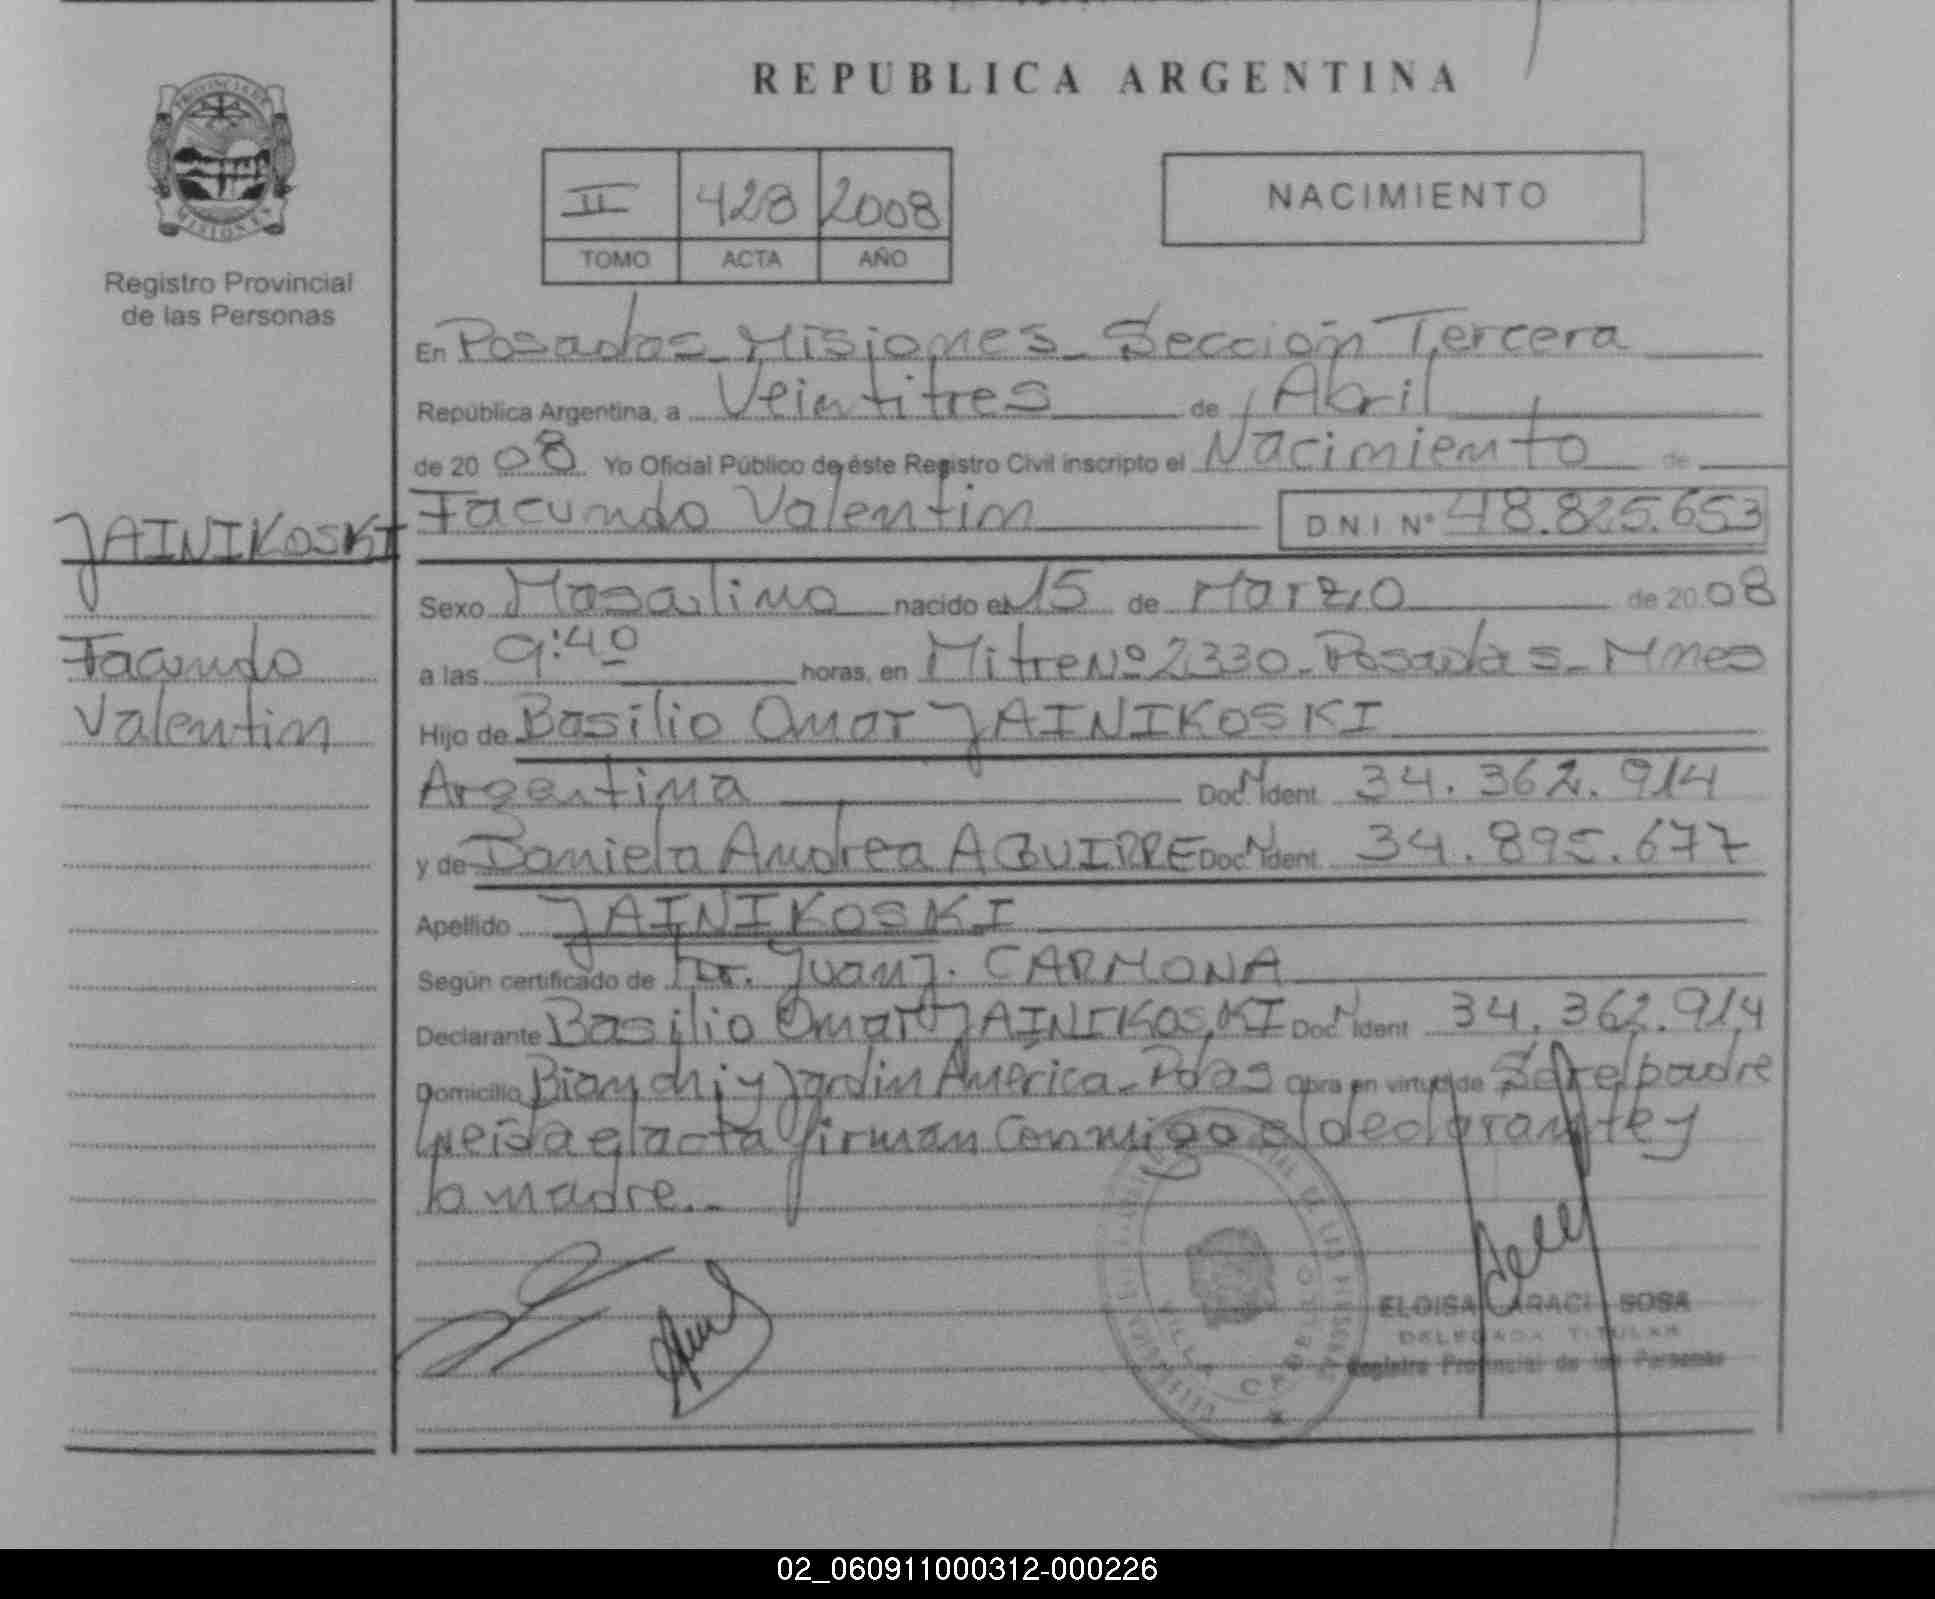 REPUBLICA ARGENTINA
PROVINCIA DE MISIONES
Registro Provincial
de las Personas
II 428 2008
TOMO ACTA AÑO
NACIMIENTO
En Posadas Misiones Sección Tercera
República Argentina, a Veintitres de Abril
de 2008 Yo Oficial Público de éste Registro Civil inscripto el Nacimiento de
Facundo Valentin DNI Nº 48.825.653
JAINIKOSKI
Facundo
Valentin
Sexo Masculino nacido el 15 de Marzo de 2008
a las 9:40 horas, en Mitre Nº 2330 - Posadas - Mnes
Hijo de Basilio Omar JAINIKOSKI
Argentina Doc. N Ident. 34.362.914
y de Daniela Andrea AGUIRRE Doc. N Ident. 34.895.677
Apellido JAINIKOSKI
Según certificado de Dr. Juan J. CARMONA
Declarante Basilio Omar JAINIKOSKI Doc. N Ident. 34.362.914
Domicilio Bianchi y Jardin América - Pdas Obra en virtud de Ser el padre
Leida el acta firman Conmigo el declarante y
la madre.-
ELOISA ARACI SOSA
DELEGADA TITULAR
Registro Provincial de las Personas
VILLA CABELLO
02_060911000312-000226